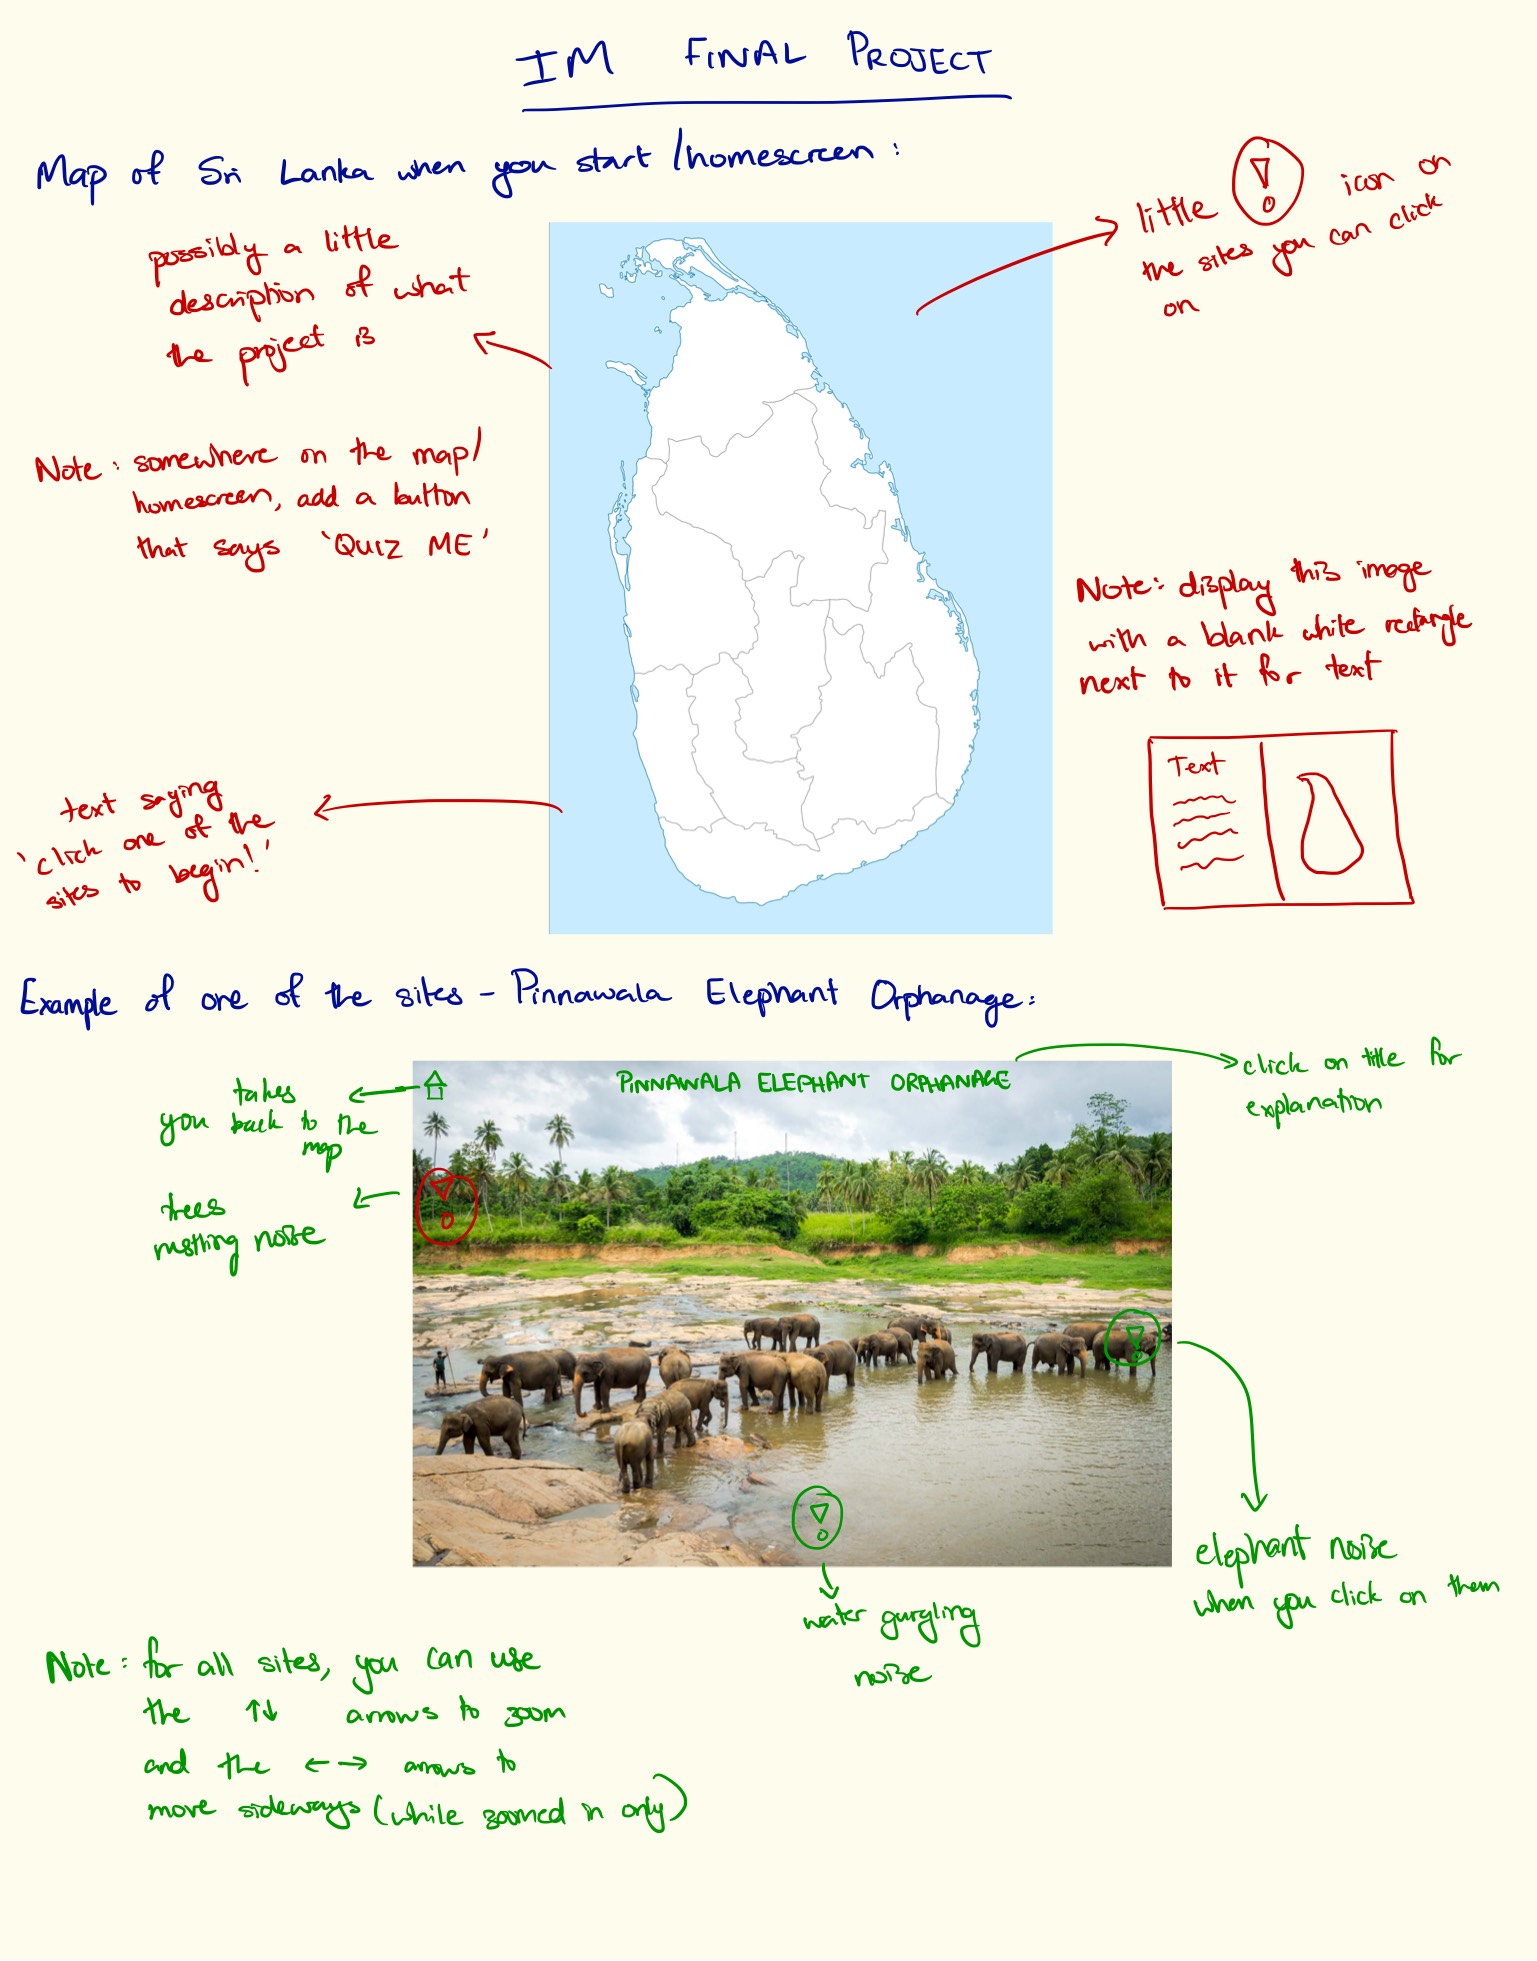 IM FINAL PROJECT
Map of Sri Lanka when you start/homescreen:
possibly a little
description of what
the project is
little ! icon on
the sites you can click
on
Note: somewhere on the map/
homescreen, add a button
that says 'QUIZ ME'
Note: display this image
with a blank white rectangle
next to it for text
Text
text saying
'click one of the
sites to begin!'
Example of one of the sites - Pinnawala Elephant Orphanage:
takes
you back to the
map
PINNAWALA ELEPHANT ORPHANAGE
click on title for
explanation
trees
rustling noise
!
!
!
elephant noise
when you click on them
water gurgling
noise
Note: for all sites, you can use
the ↑↓ arrows to zoom
and the ← → arrows to
move sideways (while zoomed in only)